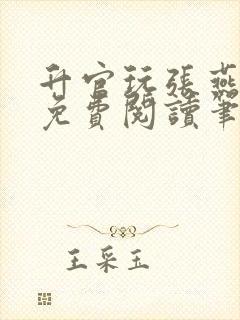 升官玩张燕
免費閱讀筆
王采玉